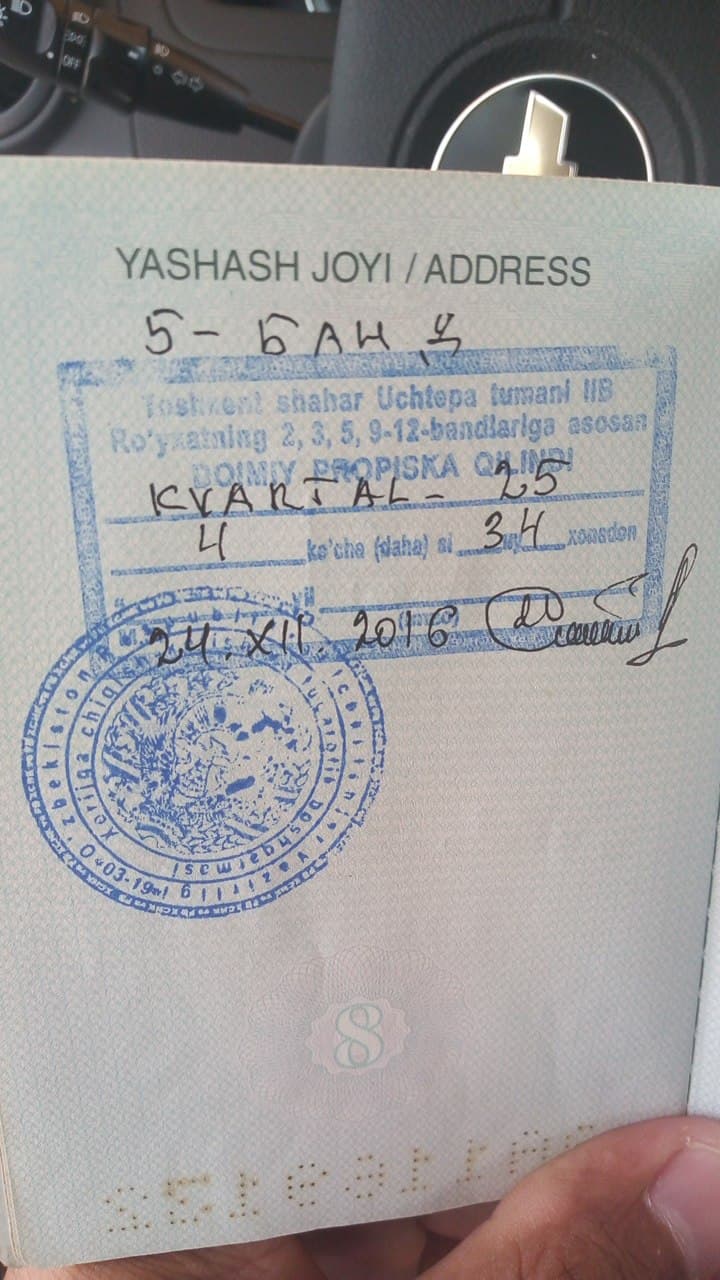 OFF
YASHASH JOYI / ADDRESS
5 - БАНД
Toshkent shahar Uchtepa tumani IIB
Ro'yxatning 2, 3, 5, 9-12-bandlariga asosan
DOIMIY PROPISKA QILINDI
KVARTAL - 25
4 ko'cha (daha) si 34 xonadon
24. XII. 2016
O'zbekiston Respublikasi Ichki ishlar vazirligi
Xorijga chiqish
boshqarmasi
03-19
8